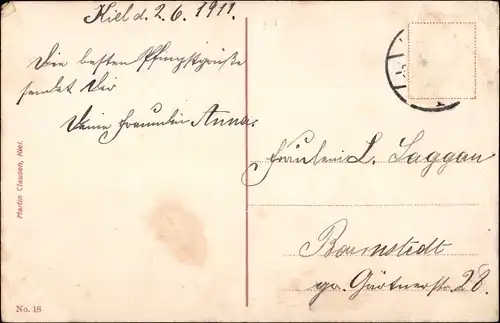 Kiel d. 2.6. 1911.
Die besten Pfingstgrüße
sendet Dir
Deine Freundin Anna.
Fräulein L. Saggau
Barmstedt
gr. Gärtnerstr. 28.
Martin Clausen, Kiel.
No. 18